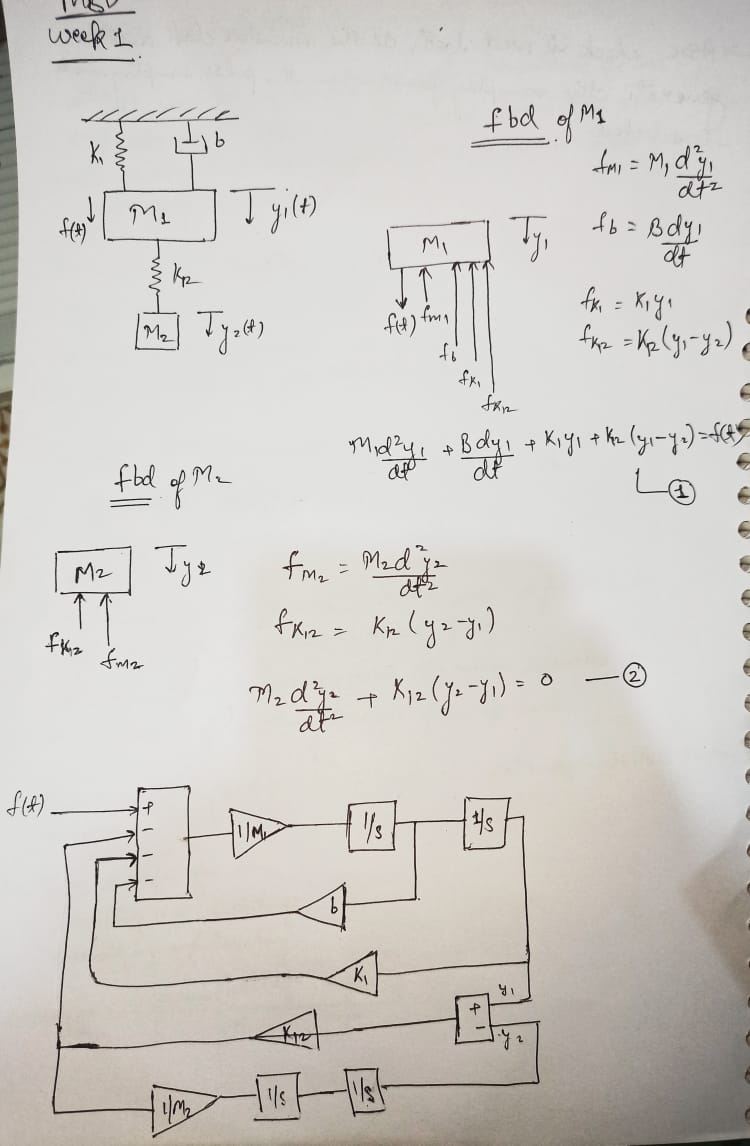 week 1
K₁
b
f(t)
M₁
y₁(t)
K₁₂
M₂
y₂(t)
fbd of M₁
fM₁ = M₁ d²y₁/dt²
M₁
y₁
fb = B dy₁/dt
f(t)
fm₁
fb
fK₁
fK₁₂
fK₁ = K₁y₁
fK₁₂ = K₁₂(y₁-y₂)
M₁d²y₁/dt² + Bdy₁/dt + K₁y₁ + K₁₂(y₁-y₂) = f(t)
①
fbd of M₂
M₂
y₂
fK₁₂
fm₂
fM₂ = M₂d²y₂/dt²
fK₁₂ = K₁₂(y₂-y₁)
M₂d²y₂/dt² + K₁₂(y₂-y₁) = 0 — ②
f(t)
+
-
-
-
1/M₁
1/s
1/s
b
K₁
y₁
+
-
y₂
K₁₂
1/M₂
1/s
1/s